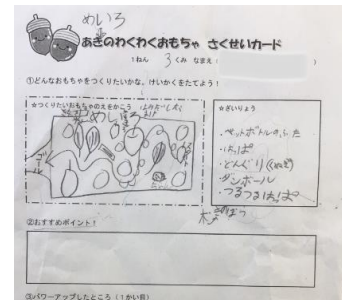 めいろ
あきのわくわくおもちゃ さくせいカード
1ねん 3くみ なまえ
①どんなおもちゃをつくりたいかな。けいかくをたてよう！
☆つくりたいおもちゃのえをかこう
めいろ
ゴール
☆ざいりょう
・ペットボトルのふた
・はっぱ
・どんぐり(くぬぎ)
・ダンボール
・つるつるはっぱ
②おすすめポイント！
③パワーアップしたところ（1かい目）